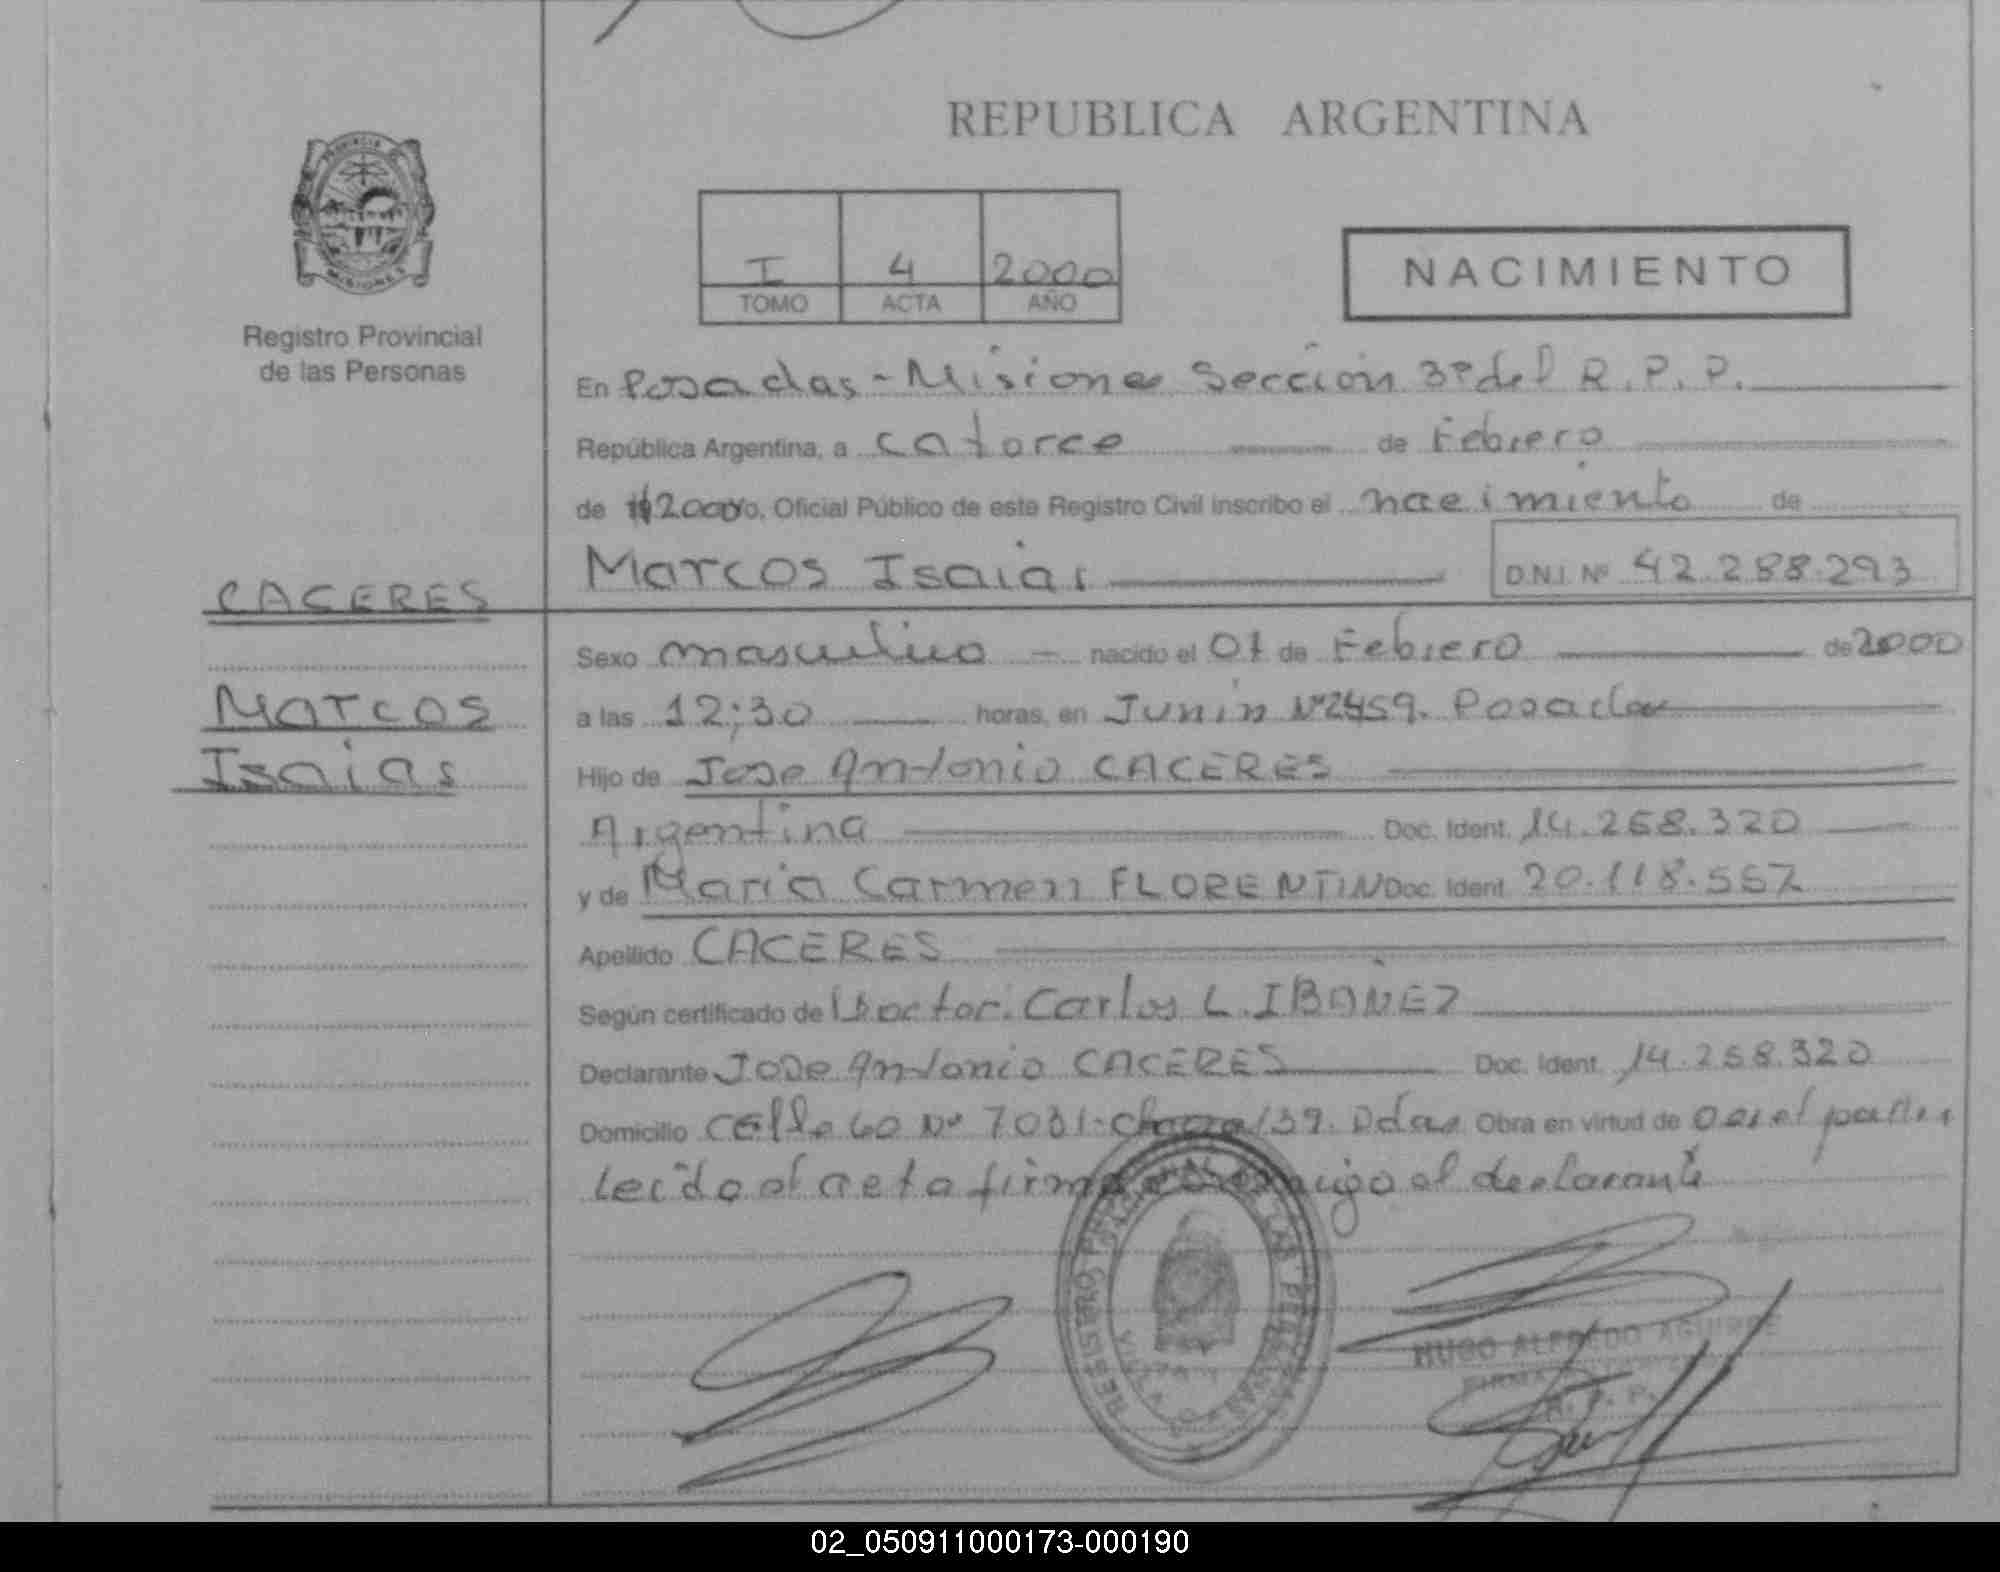 REPUBLICA ARGENTINA
PROVINCIA DE
MISIONES
Registro Provincial
de las Personas
I 4 2000
TOMO ACTA AÑO
NACIMIENTO
En Posadas - Misiones Sección 3º del R.P.P.
República Argentina, a catorce de Febrero
de 2000 Yo, Oficial Público de este Registro Civil inscribo el nacimiento de
Marcos Isaias D.N.I. Nº 42.288.293
CACERES
Marcos
Isaias
Sexo masculino - nacido el 01 de Febrero de 2000
a las 12:30 horas, en Junín Nº 2459. Posadas
Hijo de Jose Antonio CACERES
Argentina Doc. Ident. 14.258.320
y de Maria Carmen FLORENTIN Doc. Ident. 20.118.557
Apellido CACERES
Según certificado de Doctor. Carlos L. IBAÑEZ
Declarante Jose Antonio CACERES Doc. Ident. 14.258.320
Domicilio Calle 60 Nº 7031- 139. Pdas Obra en virtud de
Leído el acta firma conmigo el declarante
REGISTRO PROVINCIAL DE LAS PERSONAS
HUGO ALFREDO AGUIRRE
R. P. P.
02_050911000173-000190